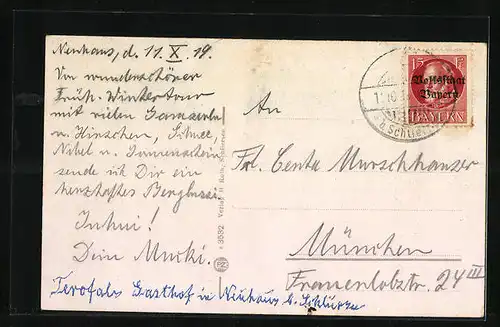 Neuhaus, d. 11. X. 19.
Von wunderschöner
Früh-Wintertour
mit vielen
u. Hirschen, Schnee,
Nebel u. Sonnenschein
sende ich Dir ein
herzhaftes Bergbussi.
Juhui!
Dein Mucki.
An
Frl. Centa Murschhauser
München
Frauenlobstr. 24 III
Terofals Gasthof in Neuhaus b. Schliersee
15 PF
Volksstaat
Bayern
BAYERN
3552 Verlag H.